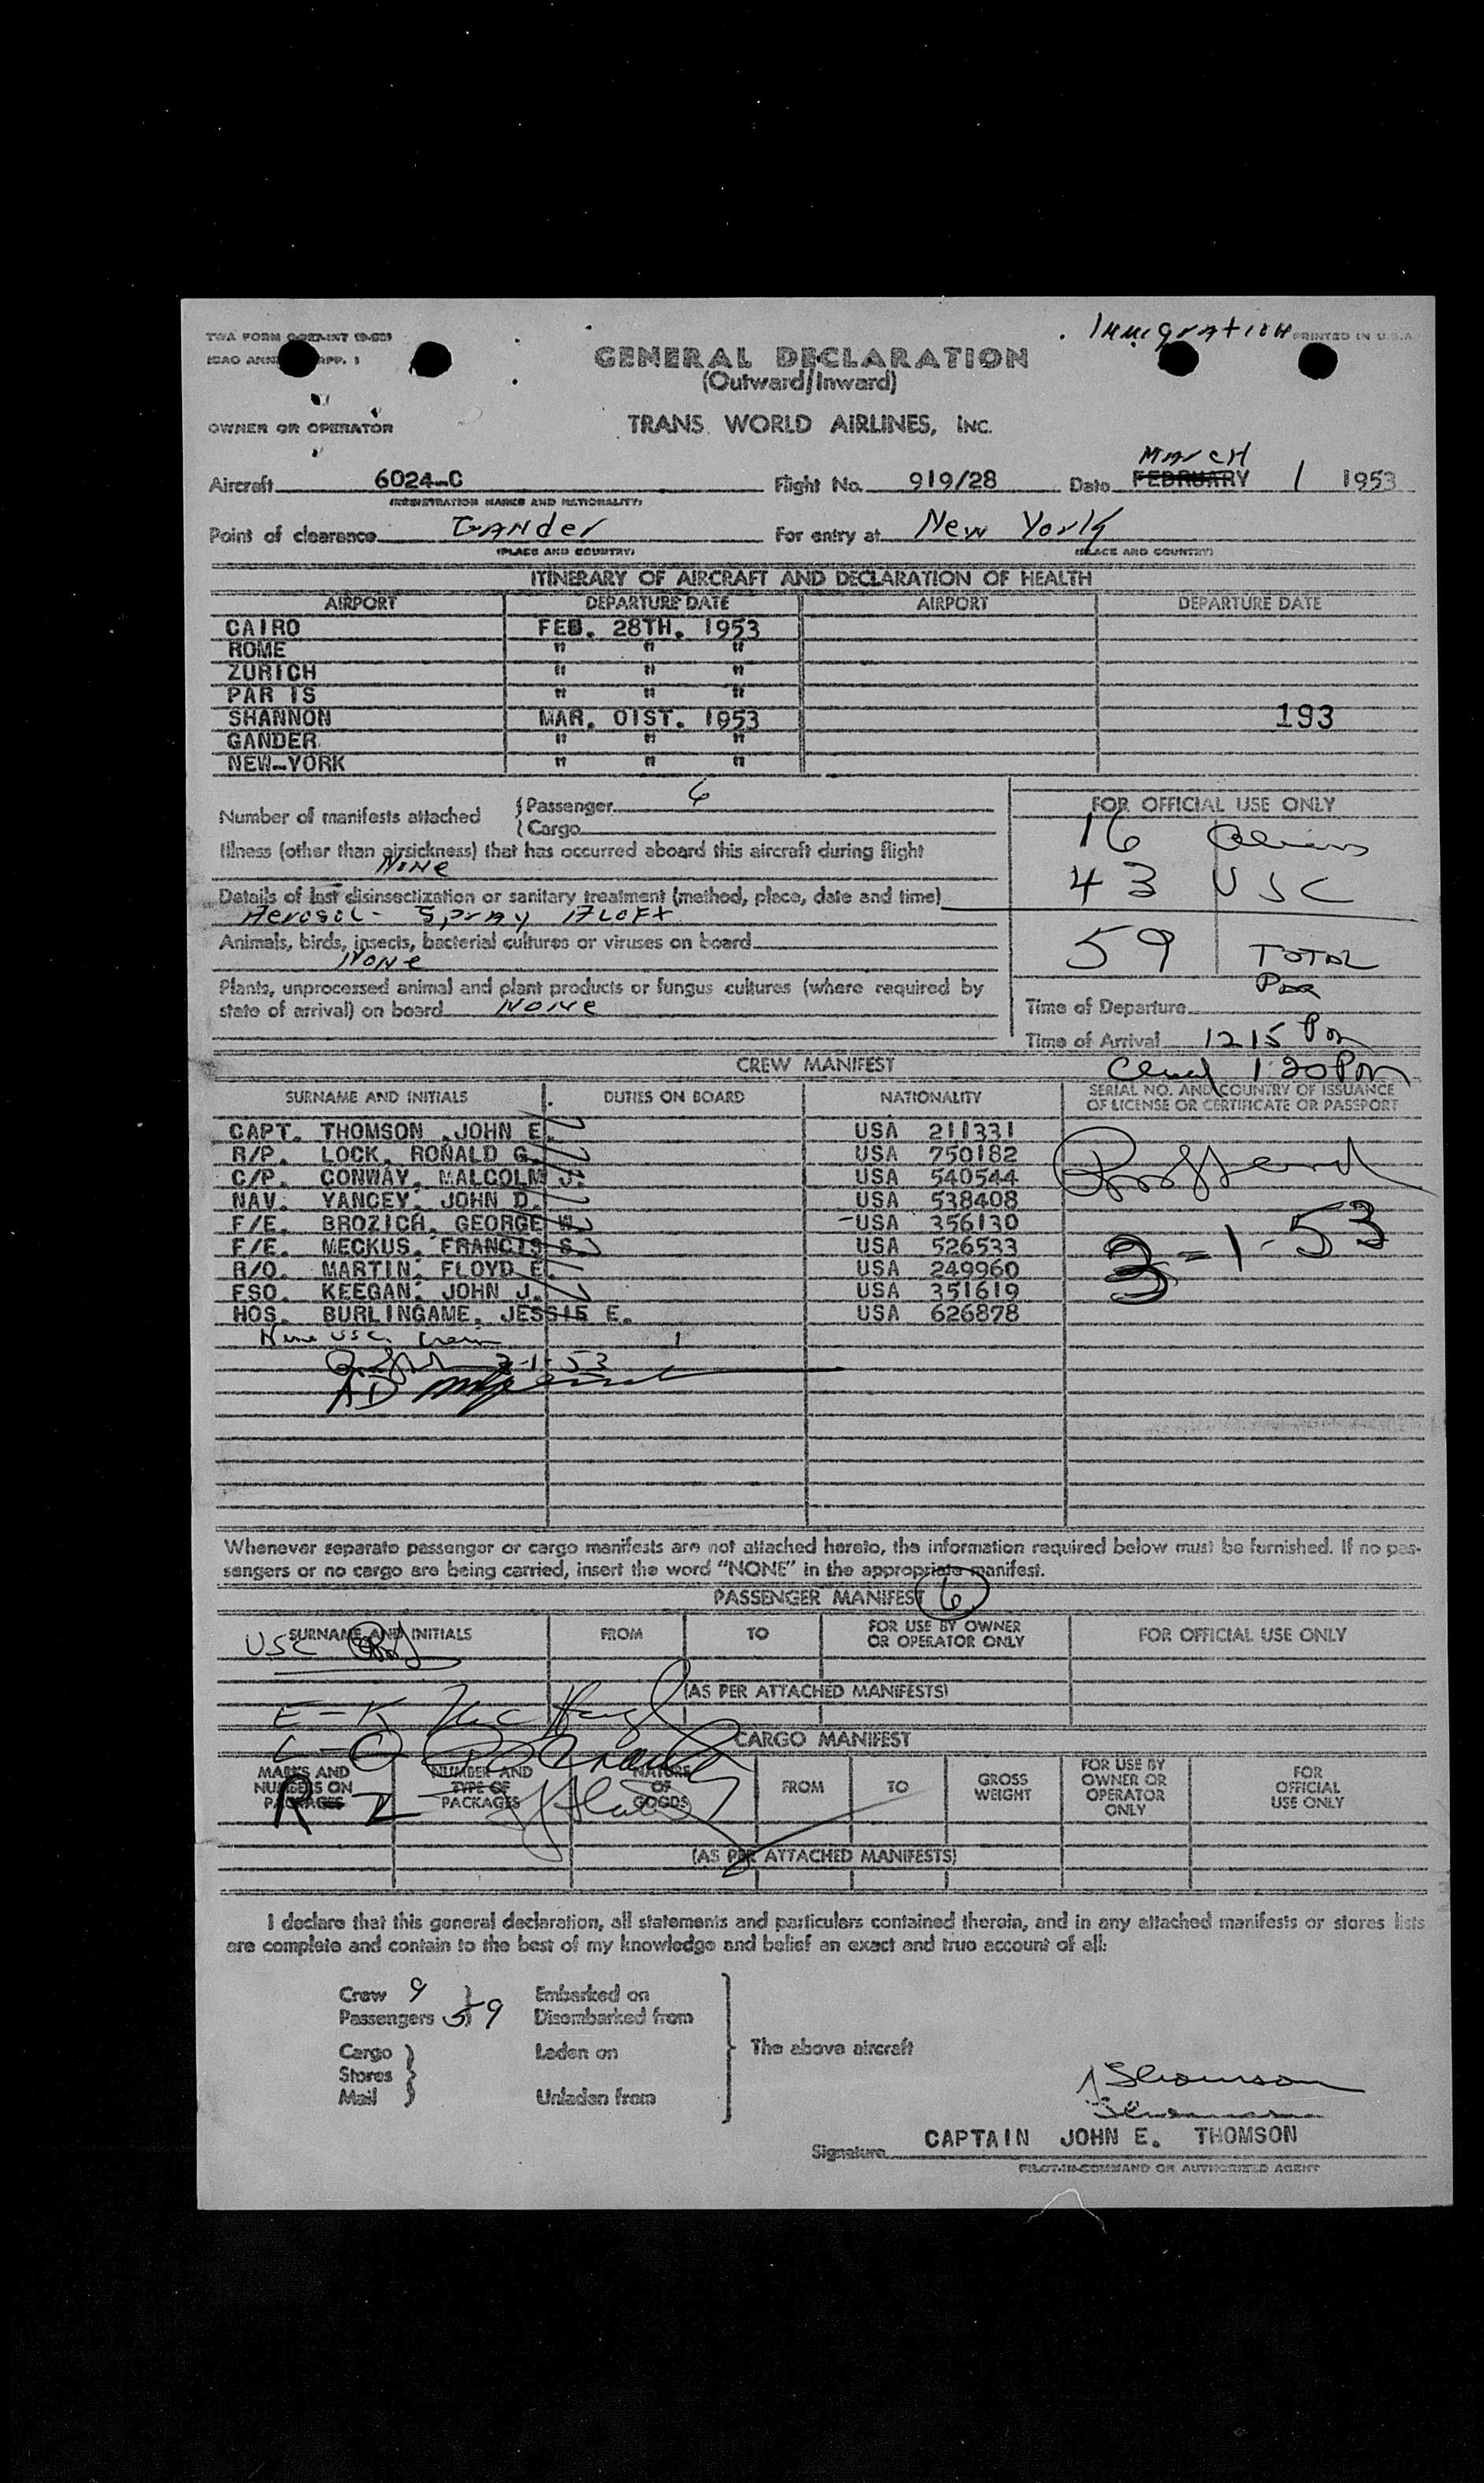 Immigration
PRINTED IN U.S.A.
GENERAL DECLARATION
(Outward/Inward)
OWNER OR OPERATOR
TRANS WORLD AIRLINES, INC.
MARCH
Aircraft 6024-C Flight No. 919/28 Date FEBRUARY 1 1953
(REGISTRATION MARKS AND NATIONALITY)
Point of clearance Gander For entry at New York
(PLACE AND COUNTRY) (PLACE AND COUNTRY)
ITINERARY OF AIRCRAFT AND DECLARATION OF HEALTH
AIRPORT DEPARTURE DATE AIRPORT DEPARTURE DATE
CAIRO FEB. 28TH. 1953
ROME " " "
ZURICH " " "
PAR IS " " "
SHANNON MAR. 01ST. 1953 193
GANDER " " "
NEW-YORK " " "
Number of manifests attached { Passenger 6
{ Cargo
FOR OFFICIAL USE ONLY
16 Aliens
43 USC
59 TOTAL
Pax
Illness (other than airsickness) that has occurred aboard this aircraft during flight
None
Details of last disinsectization or sanitary treatment (method, place, date and time)
Aerosol - Spray Aloft
Animals, birds, insects, bacterial cultures or viruses on board
None
Plants, unprocessed animal and plant products or fungus cultures (where required by
state of arrival) on board None
Time of Departure
Time of Arrival 1215 Pm
1:20 Pm
CREW MANIFEST
SURNAME AND INITIALS DUTIES ON BOARD NATIONALITY SERIAL NO. AND COUNTRY OF ISSUANCE
OF LICENSE OR CERTIFICATE OR PASSPORT
CAPT. THOMSON, JOHN E. USA 211331
R/P. LOCK, RONALD G. USA 750182
C/P. CONWAY, MALCOLM J. USA 540544
NAV. YANCEY, JOHN D. USA 538408
F/E. BROZICH, GEORGE W. USA 356130
F/E. MECKUS, FRANCIS S. USA 526533
R/O. MARTIN, FLOYD E. USA 249960
FSO. KEEGAN, JOHN J. USA 351619
HOS. BURLINGAME, JESSIE E. USA 626878
3-1-53
Nine USC. Crew
3-1-53
Whenever separate passenger or cargo manifests are not attached hereto, the information required below must be furnished. If no pas-
sengers or no cargo are being carried, insert the word "NONE" in the appropriate manifest.
PASSENGER MANIFEST 6
SURNAME AND INITIALS FROM TO FOR USE BY OWNER
OR OPERATOR ONLY FOR OFFICIAL USE ONLY
USC
(AS PER ATTACHED MANIFESTS)
E-K
CARGO MANIFEST
MARKS AND
NUMBERS ON
PACKAGES
NUMBER AND
TYPE OF
PACKAGES
NATURE
OF
GOODS
FROM TO GROSS
WEIGHT
FOR USE BY
OWNER OR
OPERATOR
ONLY
FOR
OFFICIAL
USE ONLY
R-Z
(AS PER ATTACHED MANIFESTS)
I declare that this general declaration, all statements and particulars contained therein, and in any attached manifests or stores lists
are complete and contain to the best of my knowledge and belief an exact and true account of all:
Crew 9 Embarked on
Passengers 59 Disembarked from
Cargo Laden on
The above aircraft
Stores
Mail Unladen from
J Thomson
Thomson
Signature CAPTAIN JOHN E. THOMSON
PILOT-IN-COMMAND OR AUTHORIZED AGENT